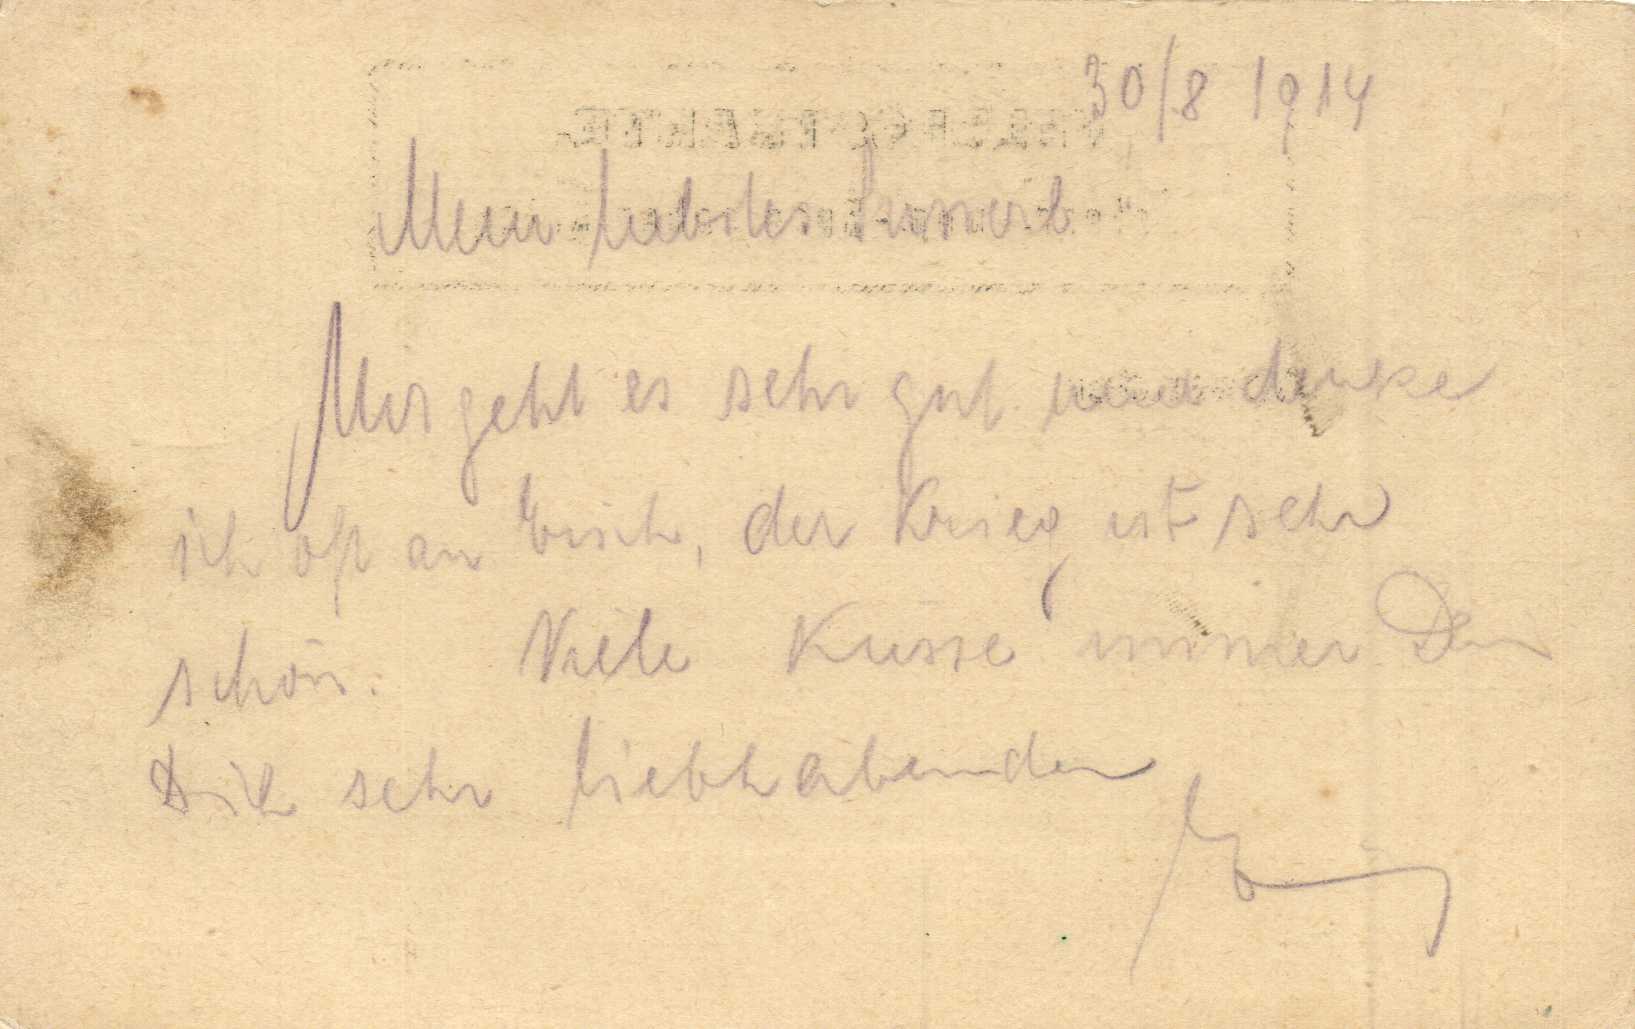 30/8 1914
Mein liebstes
Mir geht es sehr gut und denke
ich oft an Euch, der Krieg ist sehr
schön. Viele Küsse immer Dein
Dich sehr liebhabender